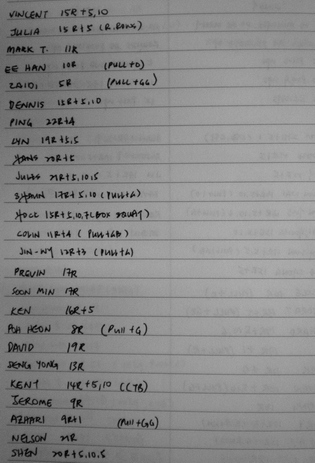 VINCENT 15R+5,10
JULIA 15R+5 (R.ROWS)
MARK T. 11R
EE HAN 10R (PULL+O)
ZAIDI 5R (PULL+GG)
DENNIS 12R+5,10
PING 22R+4
LYN 19R+5,5
HANS 20R+5
JULES 21R+5,10,5
SHAUN 17R+5,10 (PULL+L)
HOCK 15R+5,10,7 (BOX SQUAT)
COLIN 11R+4 (PULL+LB)
JIN-WY 12R+3 (PULL+L)
PREVIN 17R
SOON MIN 17R
KEN 16R+5
HEON 8R (PULL+G)
DAVID 19R
SENG YONG 13R
KENT 14R+5,10 (CTB)
JEROME 9R
AZHARI 9R+1 (PULL+GG)
NELSON 21R
SHEN 20R+5,10,5